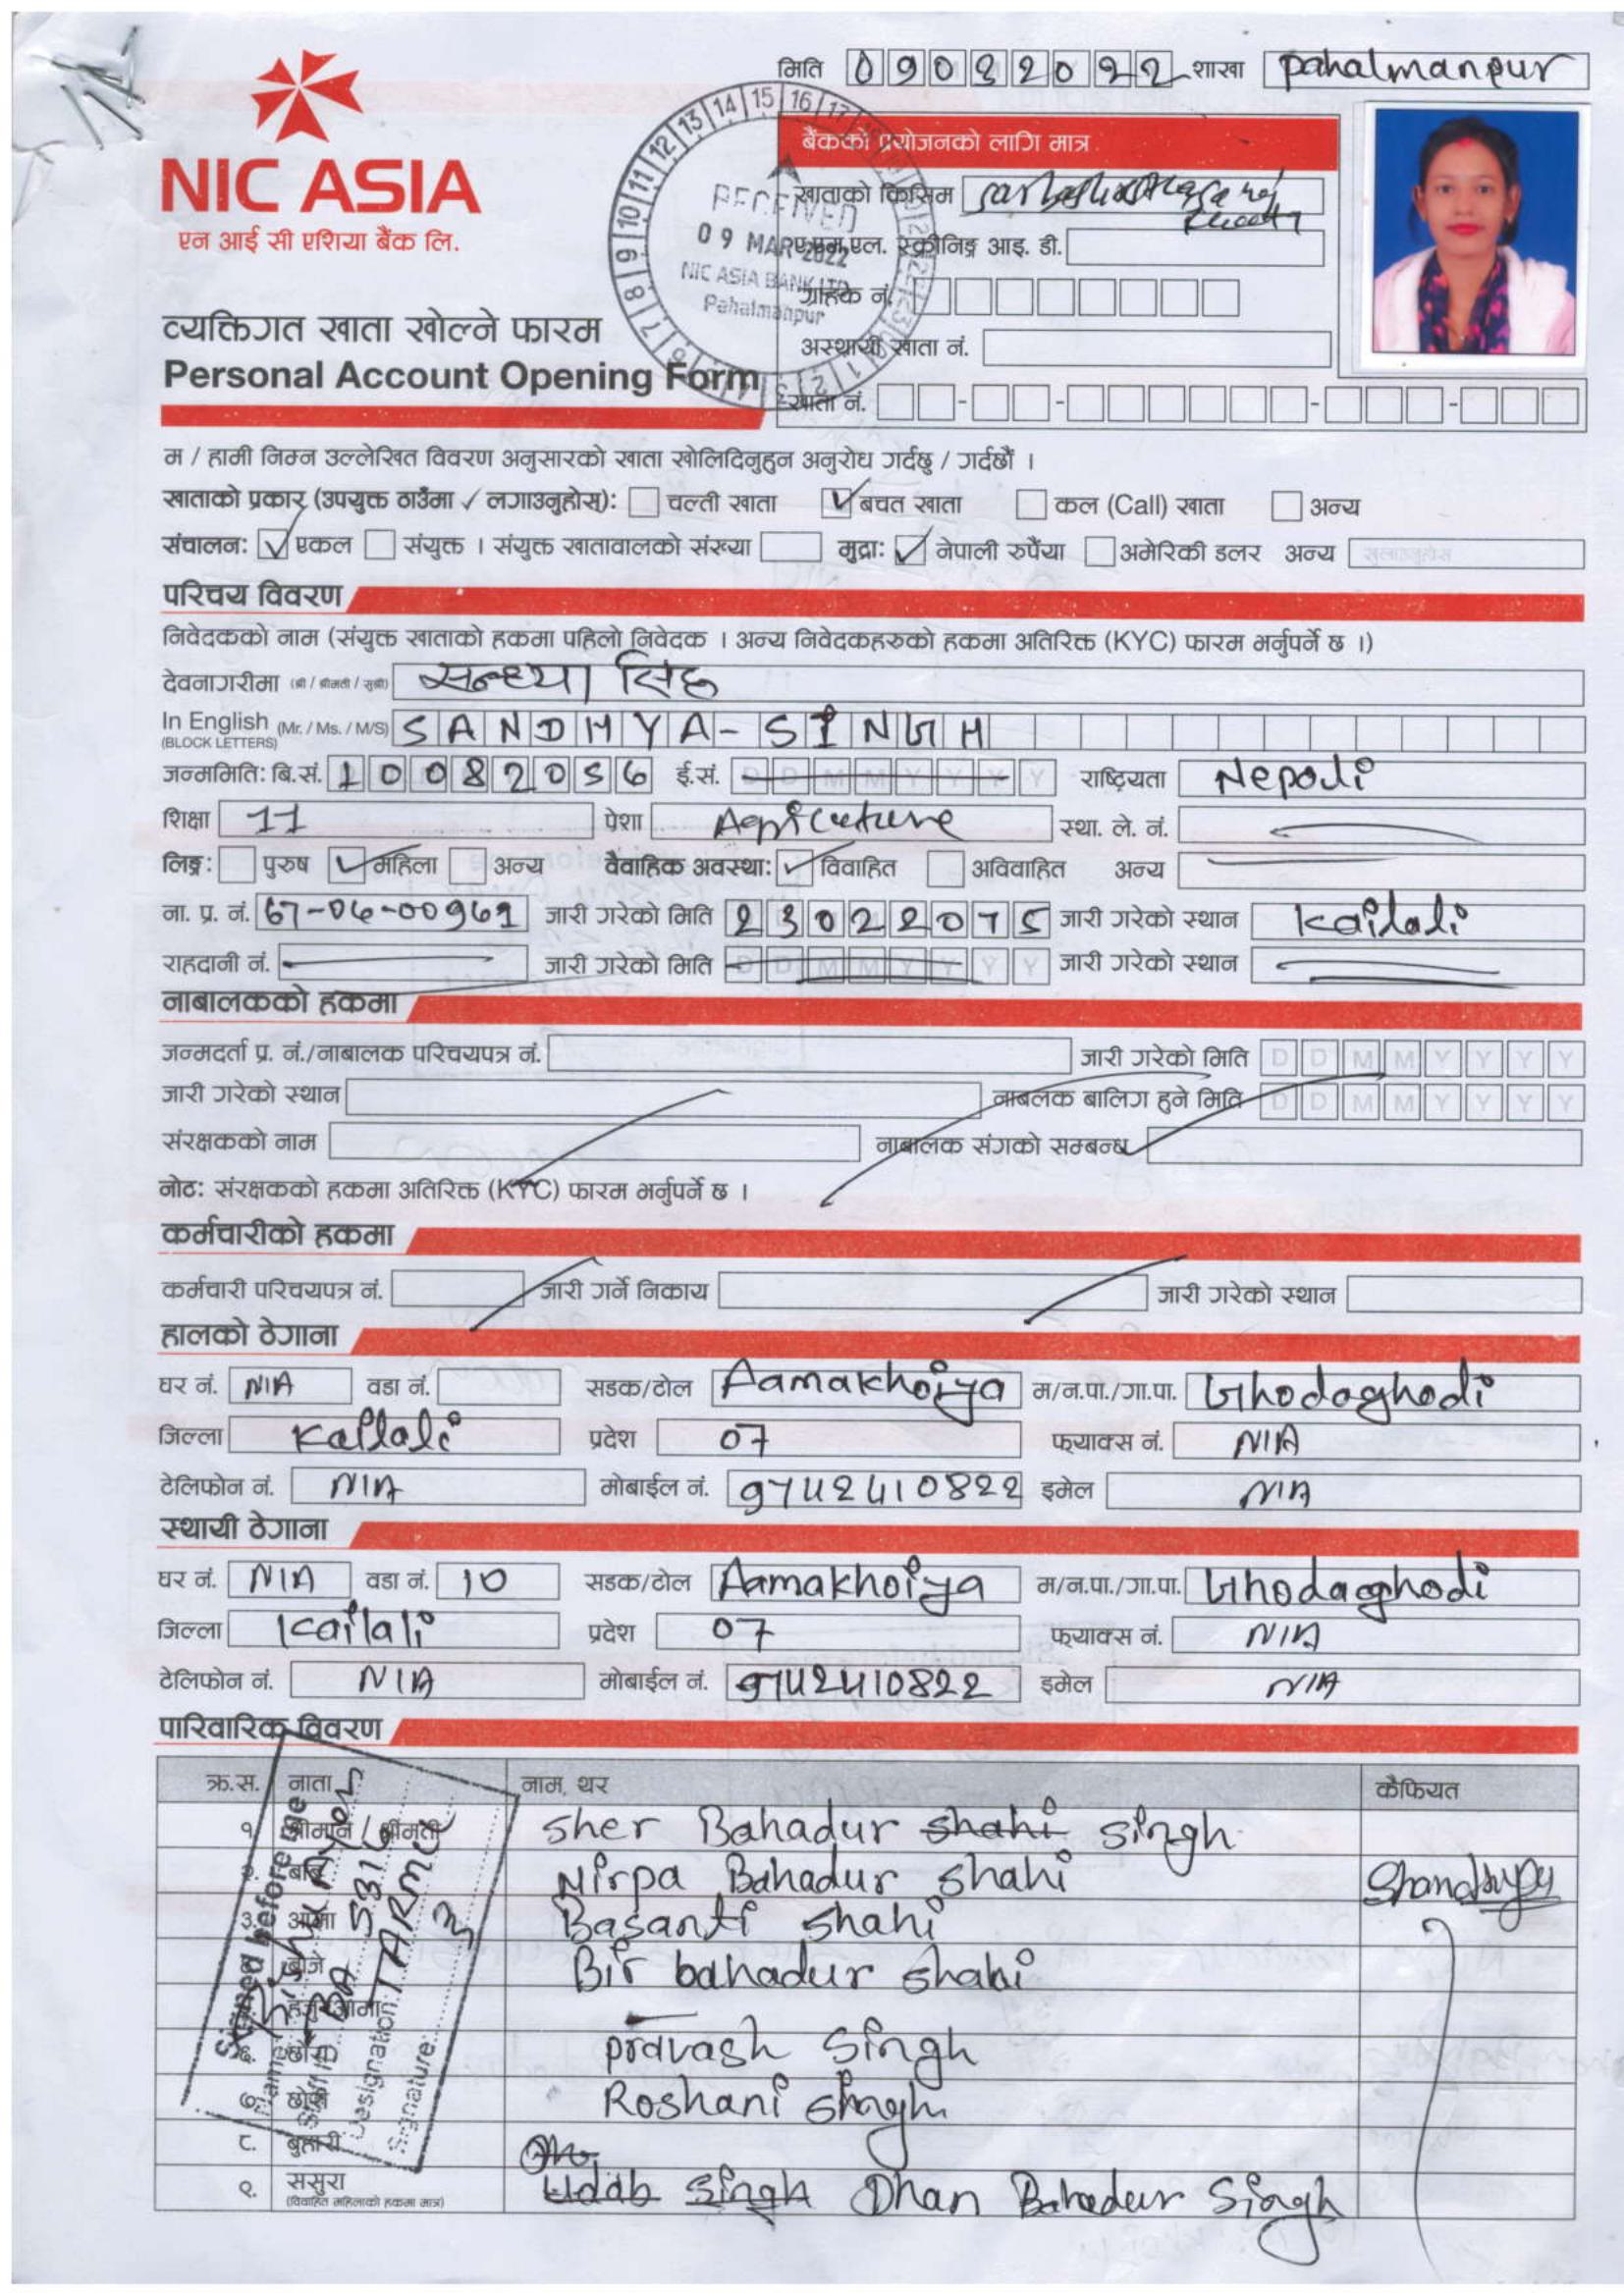 मिति 09032022 शाखा pahalmanpur
NIC ASIA
एन आई सी एशिया बैंक लि.
बैंकको प्रयोजनको लागि मात्र
खाताको किसिम
एम.एल. स्क्रीनिङ्ग आइ. डी.
ग्राहक नं.
अस्थायी खाता नं.
खाता नं.
RECEIVED
09 MAR 2022
NIC ASIA BANK LTD.
Pahalmanpur
व्यक्तिगत खाता खोल्ने फारम
Personal Account Opening Form
म / हामी निम्न उल्लेखित विवरण अनुसारको खाता खोलिदिनुहुन अनुरोध गर्दछु / गर्दछौं ।
खाताको प्रकार (उपयुक्त ठाउँमा ✓ लगाउनुहोस्): चल्ती खाता ✓ बचत खाता कल (Call) खाता अन्य
संचालन: ✓ एकल संयुक्त । संयुक्त खातावालको संख्या मुद्रा: ✓ नेपाली रुपैंया अमेरिकी डलर अन्य
परिचय विवरण
निवेदकको नाम (संयुक्त खाताको हकमा पहिलो निवेदक । अन्य निवेदकहरुको हकमा अतिरिक्त (KYC) फारम भर्नुपर्ने छ ।)
देवनागरीमा (श्री / श्रीमती / सुश्री) सन्ध्या सिंह
In English (Mr. / Ms. / M/S) SANDHYA-SINGH
(BLOCK LETTERS)
जन्ममिति: बि.सं. 10082056 ई.सं. राष्ट्रियता Nepali
शिक्षा 11 पेशा Agriculture स्था. ले. नं.
लिङ्ग: पुरुष ✓ महिला अन्य वैवाहिक अवस्था: ✓ विवाहित अविवाहित अन्य
ना. प्र. नं. 67-06-00961 जारी गरेको मिति 23022075 जारी गरेको स्थान Kailali
राहदानी नं. जारी गरेको मिति DDMMYYYY जारी गरेको स्थान
नाबालकको हकमा
जन्मदर्ता प्र. नं./नाबालक परिचयपत्र नं. जारी गरेको मिति DDMMYYYY
जारी गरेको स्थान नाबलक बालिग हुने मिति DDMMYYYY
संरक्षकको नाम नाबालक संगको सम्बन्ध
नोट: संरक्षकको हकमा अतिरिक्त (KYC) फारम भर्नुपर्ने छ ।
कर्मचारीको हकमा
कर्मचारी परिचयपत्र नं. जारी गर्ने निकाय जारी गरेको स्थान
हालको ठेगाना
घर नं. N/A वडा नं. सडक/टोल Aamakhoiya म/न.पा./गा.पा. Ghodaghodi
जिल्ला Kailali प्रदेश 07 फ्याक्स नं. N/A
टेलिफोन नं. N/A मोबाईल नं. 9742410822 इमेल N/A
स्थायी ठेगाना
घर नं. N/A वडा नं. 10 सडक/टोल Aamakhoiya म/न.पा./गा.पा. Ghodaghodi
जिल्ला Kailali प्रदेश 07 फ्याक्स नं. N/A
टेलिफोन नं. N/A मोबाईल नं. 9742410822 इमेल N/A
पारिवारिक विवरण
क्र.स. नाता नाम, थर कैफियत
१ श्रीमान / श्रीमती Sher Bahadur shahi singh
Nirpa Bahadur shahi
३. आमा Basanti shahi
Bir bahadur shahi
pravash singh
७. छोरी Roshani singh
८. बुहारी
९. ससुरा Udab singh Dhan Bahadur singh
(विवाहित महिलाको हकमा मात्र)
Signed before me
Name:
Staff ID: 5316
Designation:
Signature: